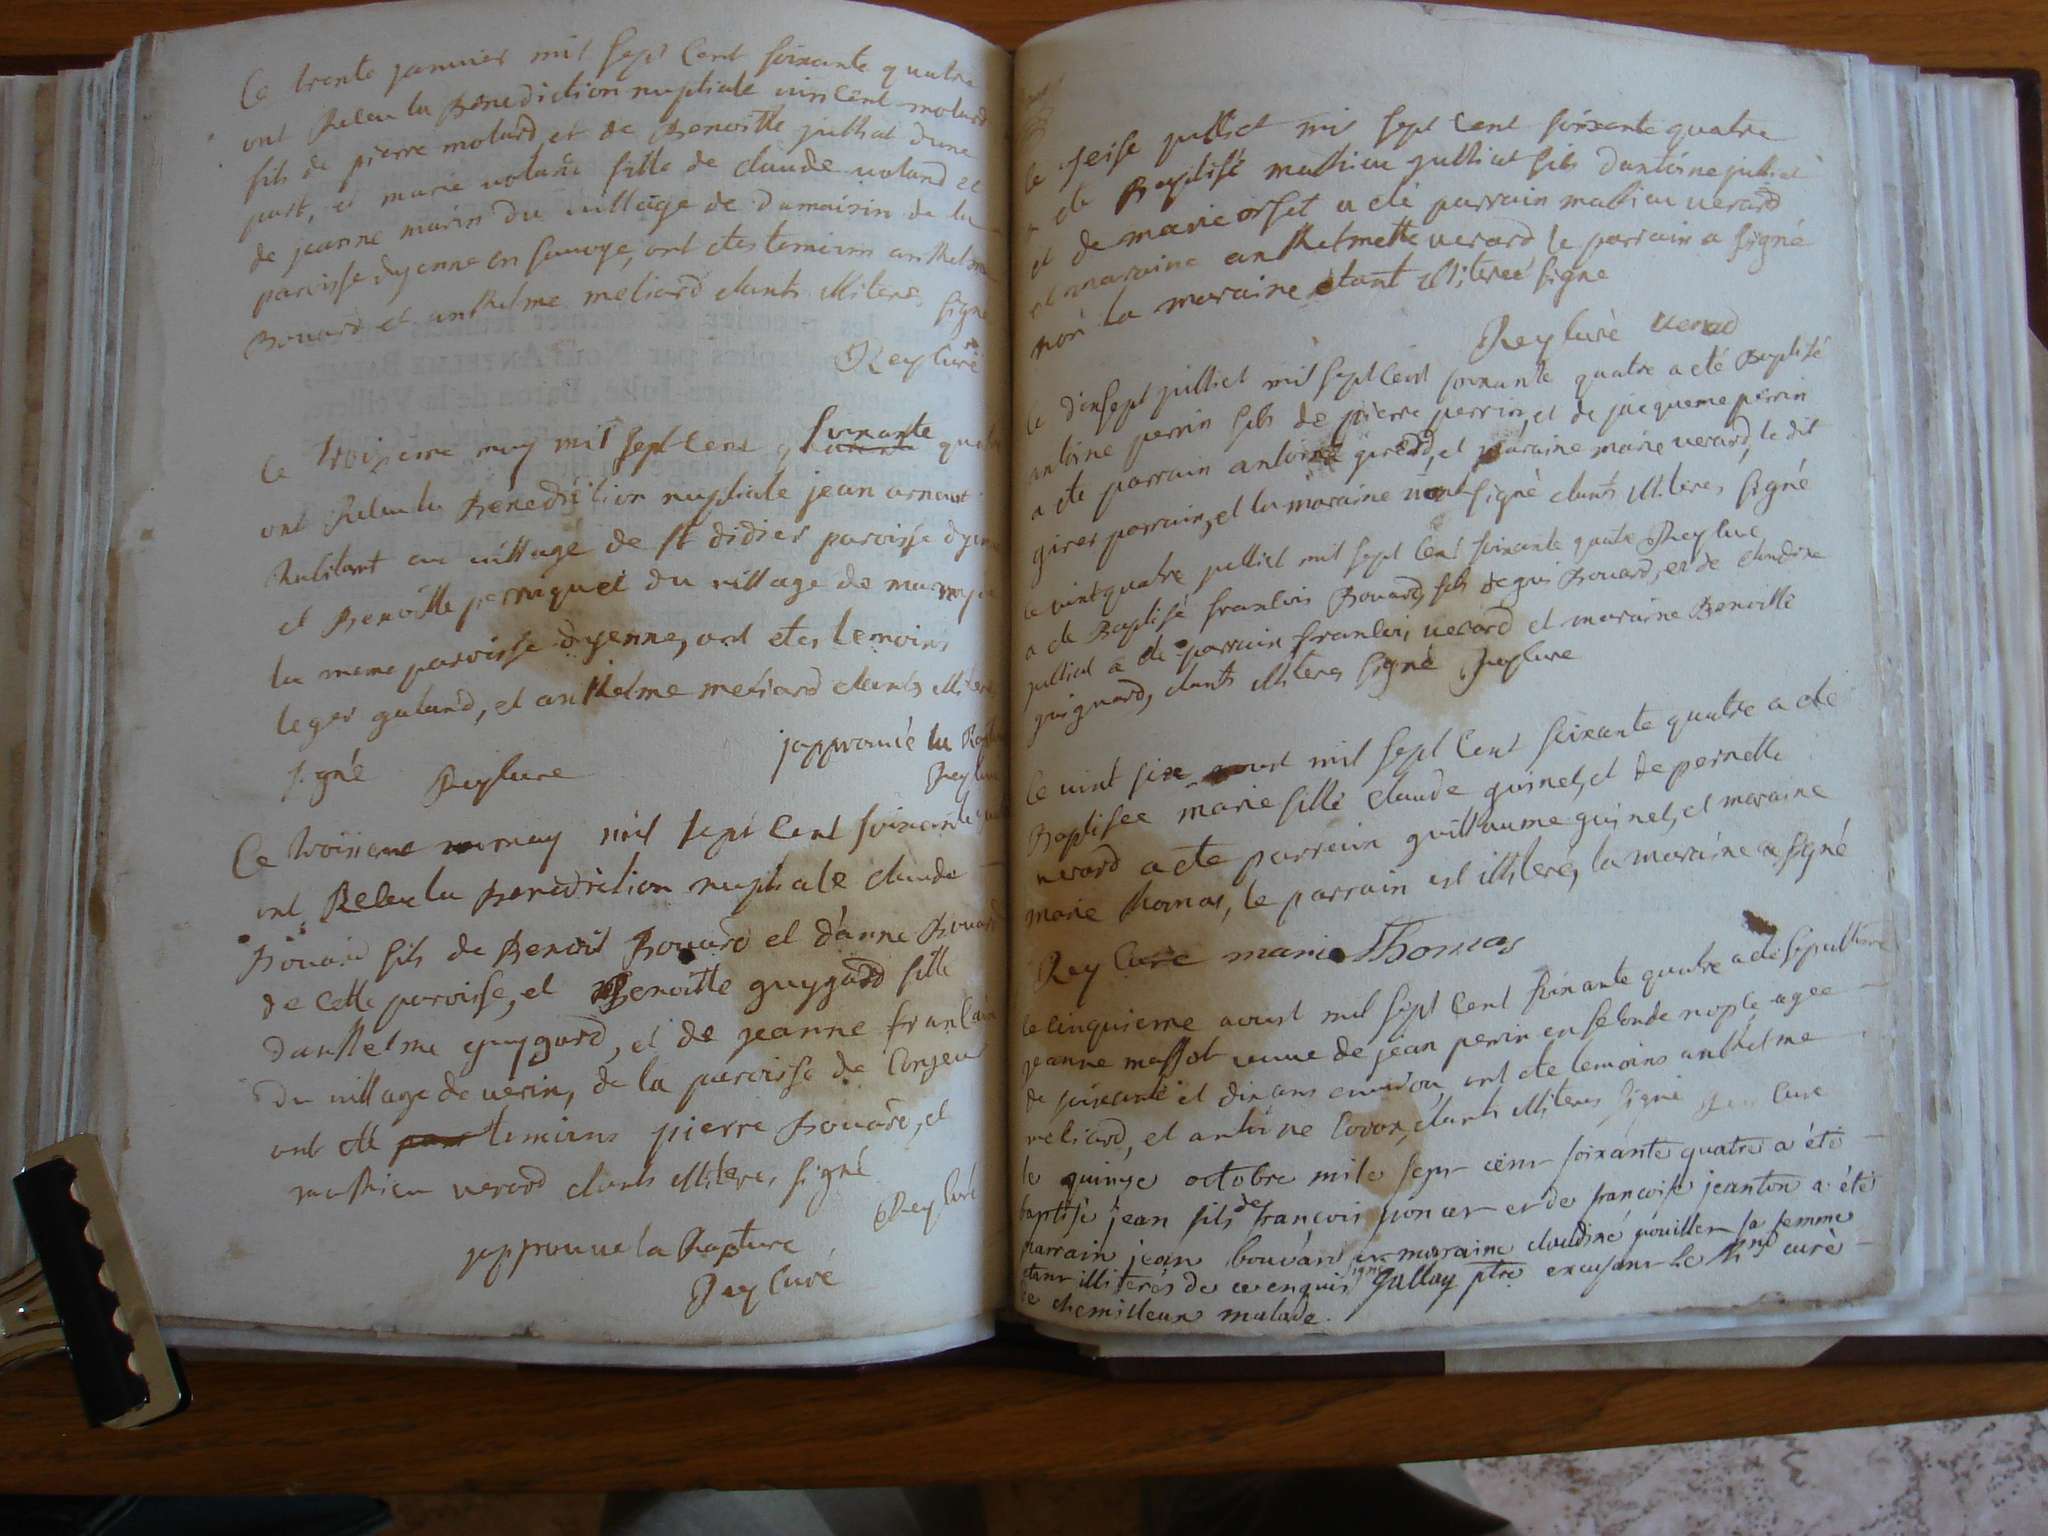 Le trente janvier mil sept cent soixante quatre
ont Recu la Benediction nuptiale vincent molard
fils de pierre molard, et de Benoitte julliat dune
part, et marie voland fille de claude voland et
de jeanne marin du village de dumaisin de la
paroisse dyenne en savoye, ont etes temoins anthelme
Bouard et anthelme meliard etants illiteres, signé
Rey curé
Le troizieme may mil sept cent soixante quatre
ont Recu la Benediction nuptiale jean arneut
habitant au village de st didier paroisse dyenne
et Benoitte perruquet du village de
la meme paroisse dyenne, ont etes temoins
leger galand, et anthelme meliard etants illiteres
signé Rey cure
japprouvé la
Rey cure
Le troisieme may mil sept cent soixante
ont Recu la Benediction nuptiale claude
Bouard fils de Benoit Bouard et danne Bouard
de cette paroisse, et Benoitte guygard fille
danthelme guygard, et de jeanne francoise
du village de verin, de la paroisse de Conjeu
ont eté temoins pierre Bouard, et
mathieu verard etants illiteres, signé
Rey curé
japprouve la Rapture
Rey curé
le seise julliet mil sept cent soixante quatre
a ete Baptisé mathieu julliat fils dantoine julliat
et de marie orset a eté parrain mathieu verard
et maraine anthelmette verard le parrain a signé
non la maraine etant illiteree signe
Rey curè verad
le dixsept julliet mil sept cent soixante quatre a eté Baptisé
antoine perrin fils de pierre perrin, et de jacqueme perrin
a ete parrain antoine girerd, et maraine marie verard, le dit
girer parrain, et la maraine nont signè etants illiteres signé
le vint quatre julliet mil sept cent soixante quatre Rey cure
a ete Baptisé francois Bouard fils de gui Bouard, et de claudine
julliat a ete parrain francois verard et maraine Benoitte
guignard, etants illiteres signé Rey cure
le vint six aoust mil sept cent soixante quatre a eté
Baptisee marie fille claude guinet, et de pernette
verard a ete parrain guillaume guinet, et maraine
marie thomas, le parrain est illiteré, la maraine a signé
Rey Cure marie Thomas
le cinquieme aoust mil sept cent soixante quatre a eté sepulturé
jeanne massot veuve de jean perrin en seconde nople, agee
de soixante et dix ans environ, ont ete temoins anthelme
meliard, et antoine Covon, etants illiteres signé Rey Cure
le quinze octobre mile sept cent soixante quatre a été
baptisè jean fils de françois poncet et de françoise jeanton a été
parrain jean bouvard et marraine claudine pouillen sa femme
etant illiterés de ce enquis signé Jullay ptre excusant le Sr curè
de chemilleux malade.